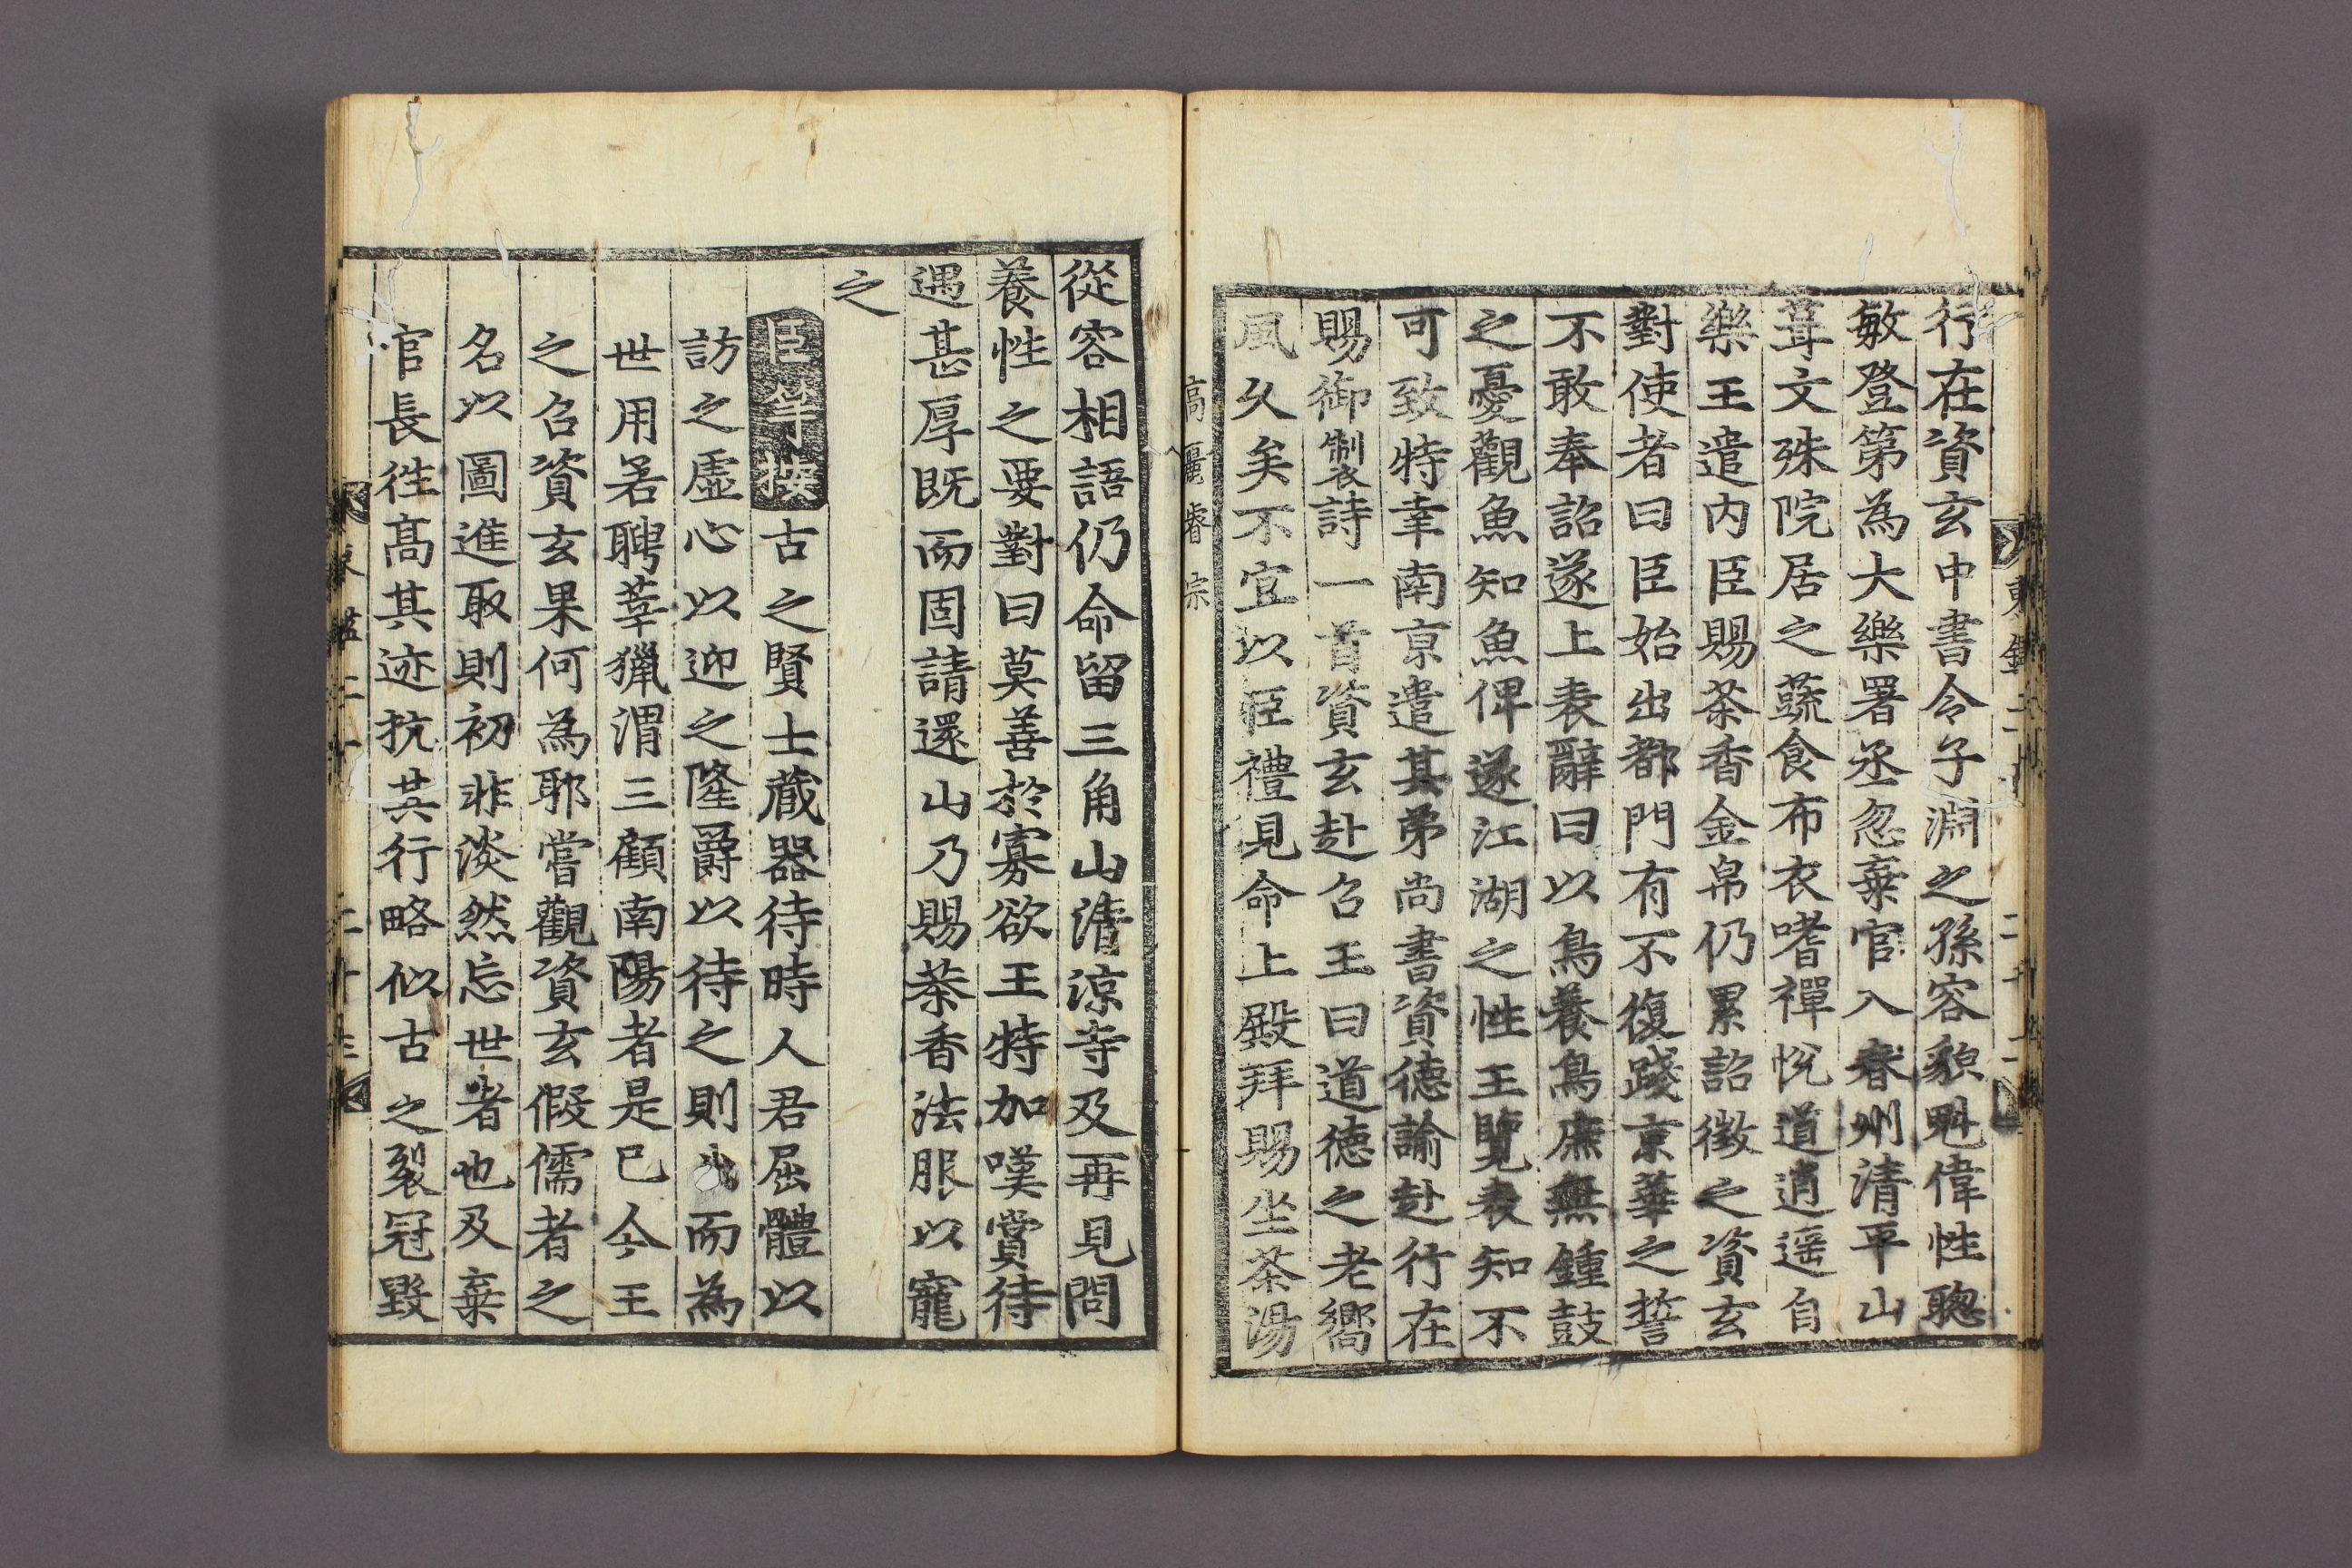 行在資玄中書令子淵之孫容貌魁偉性聦
敏登第為大樂署丞忽棄官入春州清平山
葺文殊院居之蔬食布衣嗜禪悅道逍遥自
樂王遣内臣賜茶香金帛仍累詔徴之資玄
對使者曰臣始出都門有不復踐京華之誓
不敢奉詔遂上表辭曰以鳥養鳥庶無鍾鼓
之憂觀魚知魚俾遂江湖之性王覽表知不
可致特幸南京遣其弟尚書資德諭赴行在
賜御製詩一首資玄赴召王曰道德之老嚮
風久矣不宜以臣禮見命上殿拜賜坐茶湯
高麗睿宗
從容相語仍命留三角山清涼寺及再見問
養性之要對曰莫善於寡欲王特加嘆賞待
遇甚厚既而固請還山乃賜茶香法服以寵
之
臣等按古之賢士蔵器待時人君屈體以
訪之虛心以迎之隆爵以待之則或而為
世用若聘莘獵渭三顧南陽者是已今王
之召資玄果何為耶嘗觀資玄假儒者之
名以圖進取則初非淡然忘世者也及棄
官長徃髙其迹抗其行略似古之裂冠毀